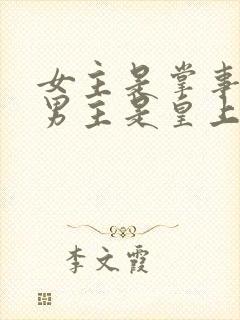 女主是掌事
男主是皇上
李文霞